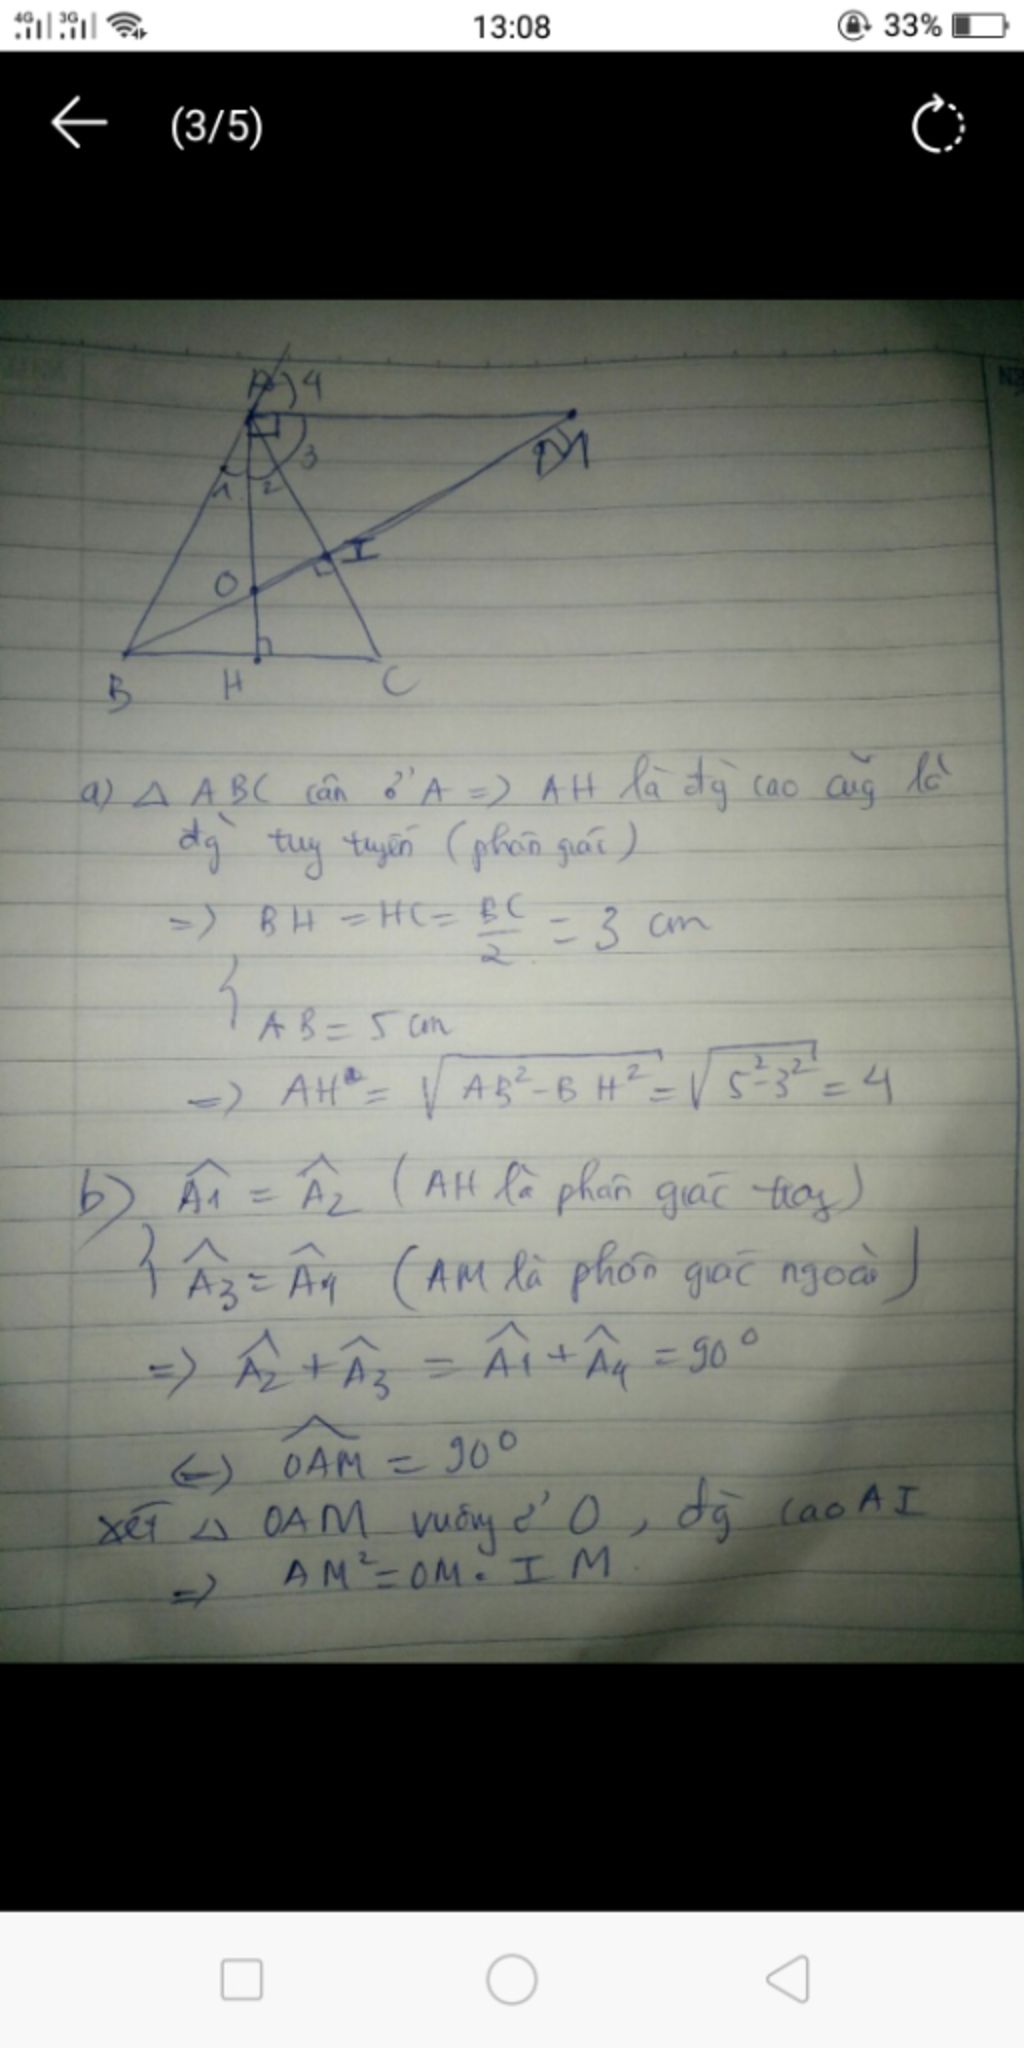 4G 3G 13:08 33%
(3/5)
A 4
3
M
1 2
I
O
B H C
a) Δ ABC cân ở A => AH là đg cao cũg là
đg tuy tuyến (phân giác)
=> BH = HC = BC/2 = 3 cm
{ AB = 5 cm
=> AH = √AB²-BH² = √5²-3² = 4
b) Â1 = Â2 (AH là phân giác trog)
{ Â3 = Â4 (AM là phân giác ngoài)
=> Â2 + Â3 = Â1 + Â4 = 90°
<=> OAM = 90°
xét Δ OAM vuông ở O, đg cao AI
=> AM² = OM. IM